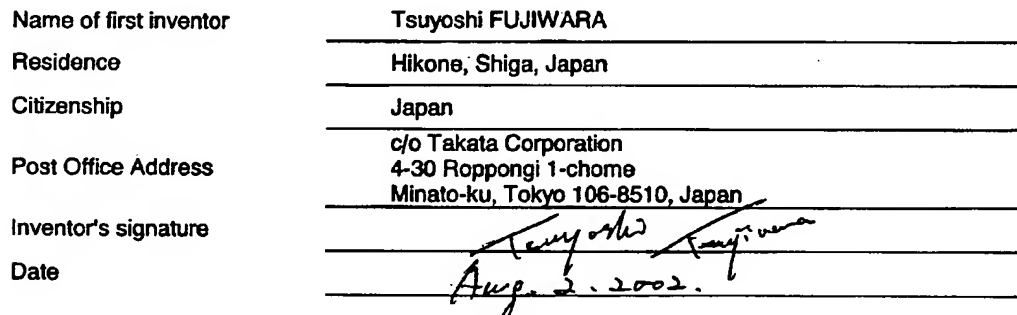 Name of first inventor Tsuyoshi FUJIWARA
Residence Hikone, Shiga, Japan
Citizenship Japan
c/o Takata Corporation
Post Office Address 4-30 Roppongi 1-chome
Minato-ku, Tokyo 106-8510, Japan
Inventor's signature Tsuyoshi Fujiwara
Date Aug. 2. 2002.